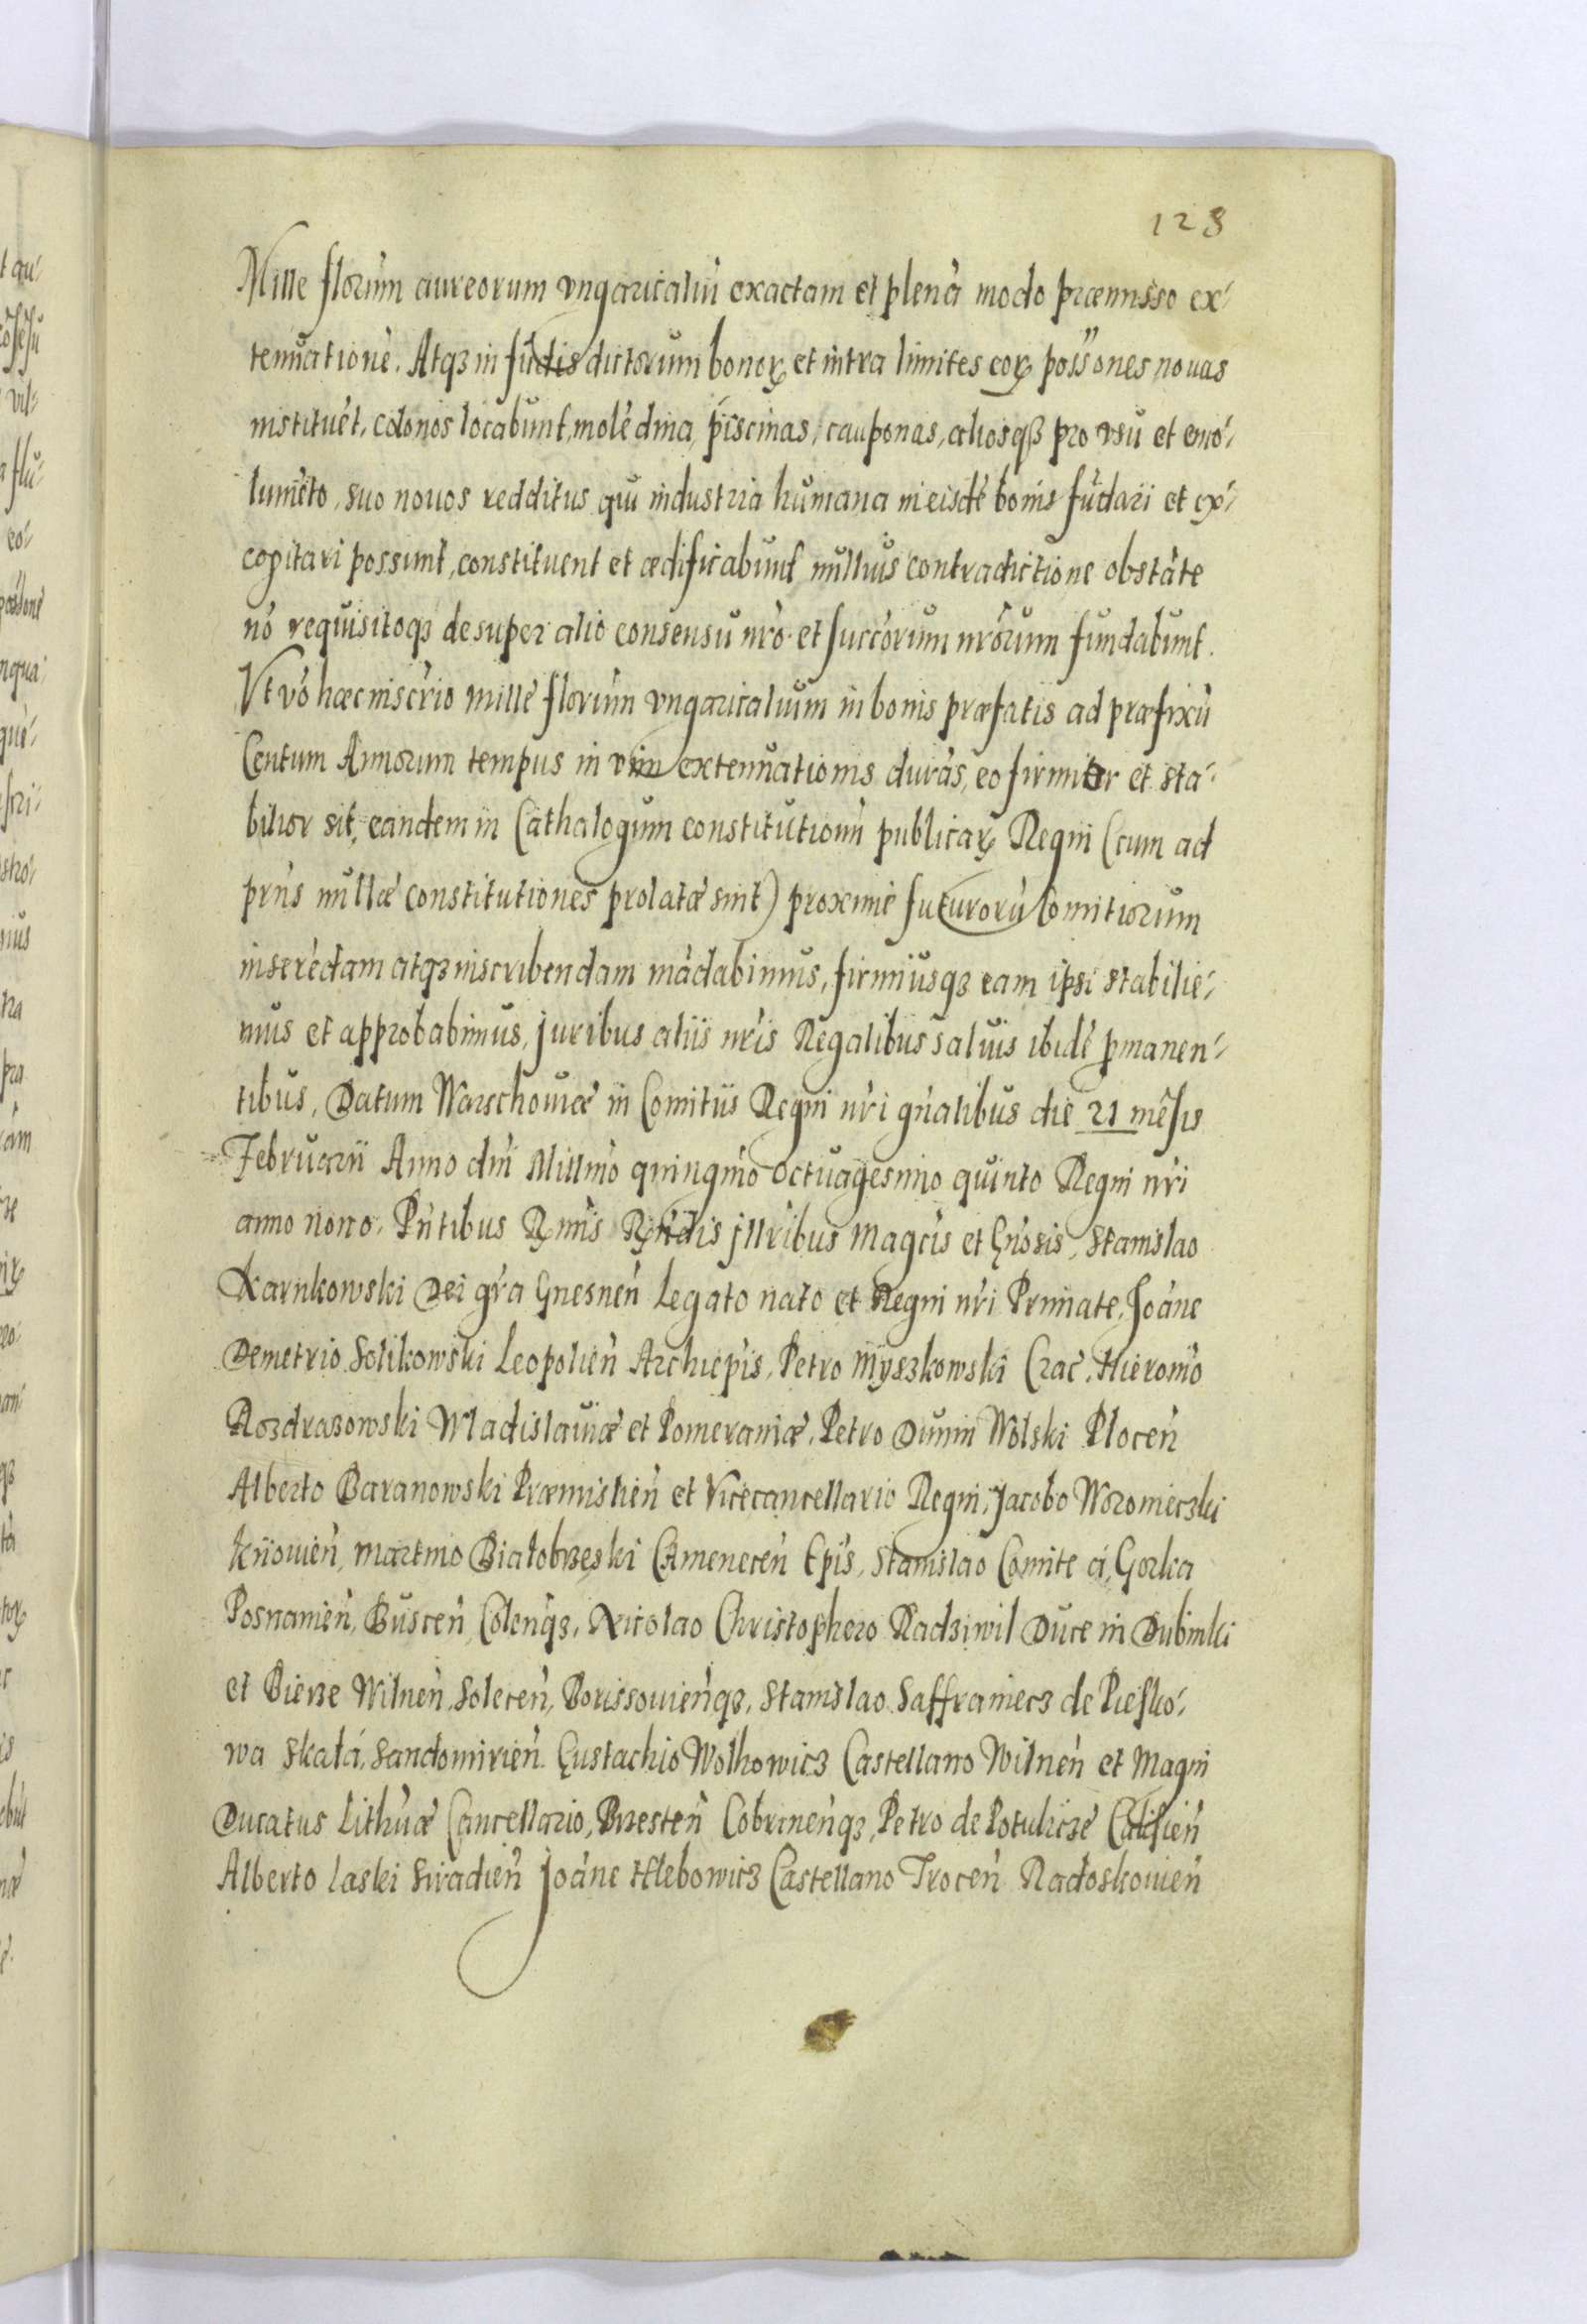 128
Mille florũm aureorum vngaricaliũ exactam et plenã modo præmisso ex-
tenuationẽ. Atqꝫ in fũdis dictorum bonoꝝ et intra limites eoꝝ possones nouas
instituẽt, colonos locabunt, molẽdina, piscinas, cauponas, aliosqꝫ pro vsũ et emo-
lumẽto suo nouos redditus qui industria humana in eisdẽ bonis fũdari et ex-
cogitari possunt, constituent et ædificabunt nullius contradictione obstãte
nõ requisitoqꝫ desuper alio consensu nrõ et succõrum nrõrum fundabunt.
Vt võ hæc inscrĩo mille florũm vngaricaliũm in bonis præfatis ad præfixũ
Centum Annorum tempus in vim extenuationis durãs, eo firmior et sta-
bilior sit, eandem in Cathalogum constitutionũ publicaꝝ Regni (cum ad
prñs nullæ constitutiones prolatæ sint) proxime futurorũ Comitiorum
inserẽdam atqꝫ inscribendam mãdabimus, firmiusqꝫ eam ipsi stabilie-
mus et approbabimus, juribus aliis nrĩs Regalibus saluis ibidẽ ꝑmanen-
tibus, Datum Warschouiæ in Comitiis Regni nrĩ gñalibus die 21 mẽsis
Februarii Anno dnĩ Millmõ quingmõ octuagesimo quinto Regni nrĩ
anno nono. Pñtibus Rꝫmis Rꝫndis jllribus Magcĩs et Gñosis, Stanislao
Karnkowski Dei grã Gnesneñ Legato nato et Regni nrĩ Primate, Joãne
Demetrio Solikowski Leopolieñ Archiepĩs, Petro Myszkowski Crac̃, Hieronĩo
Rozdrazowski Wladislauiæ et Pomeraniæ, Petro Dunin Wolski Ploceñ
Alberto Baranowski Præmislieñ et Vicecancellario Regni, Jacobo Woronieczki
Kiiouieñ, Martino Białobrzeski Cameneceñ Epĩs, Stanislao Comite á Gorka
Posnanieñ, Busceñ, Coleñqꝫ, Nicolao Christophero Radziwil Duce in Dubinki
et Bierze Wilneñ, Soleceñ, Borissouieñqꝫ, Stanislao Saffraniecz de Piesko-
wa Skałá, Sandomirieñ Eustachio Wolhowicz Castellano Wilneñ et Magni
Ducatus Lithuæ Cancellario, Bresteñ Cobrineñqꝫ, Petro de Potulicze Calisieñ
Alberto Laski Siradieñ Joãne Hlebowicz Castellano Troceñ Radoskouieñ